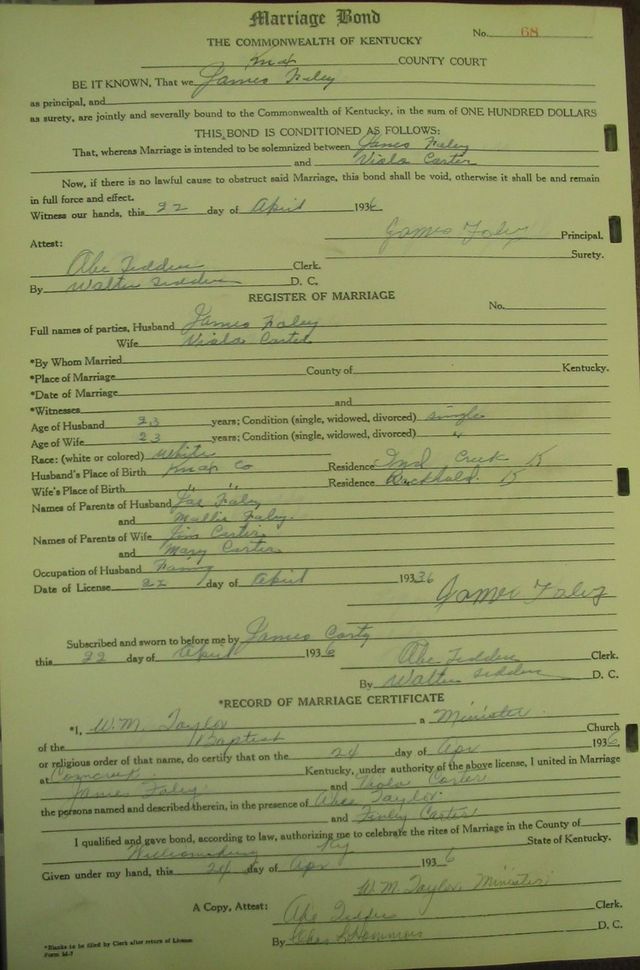 Marriage Bond
No. 68
THE COMMONWEALTH OF KENTUCKY
Knox COUNTY COURT
BE IT KNOWN, That we James Foley
as principal, and
as surety, are jointly and severally bound to the Commonwealth of Kentucky, in the sum of ONE HUNDRED DOLLARS
THIS BOND IS CONDITIONED AS FOLLOWS:
That, whereas Marriage is intended to be solemnized between James Foley
and Viola Carter
Now, if there is no lawful cause to obstruct said Marriage, this bond shall be void, otherwise it shall be and remain
in full force and effect.
Witness our hands, this 22 day of April 1936
James Foley Principal.
Attest:
Surety.
Abe Clerk.
By Walter D. C.
REGISTER OF MARRIAGE
No.
Full names of parties, Husband James Foley
Wife Viola Carter
*By Whom Married
*Place of Marriage County of Kentucky.
*Date of Marriage
*Witnesses and
Age of Husband 23 years; Condition (single, widowed, divorced) single
Age of Wife 23 years; Condition (single, widowed, divorced) "
Race: (white or colored) white
Husband's Place of Birth Knox Co Residence Ind Creek K
Wife's Place of Birth " " Residence K
Names of Parents of Husband Jas Foley
and Mollie Foley
Names of Parents of Wife Jim Carter
and Mary Carter
Occupation of Husband
Date of License 22 day of April 19336
James Foley
Subscribed and sworn to before me by James
this 22 day of April 1936
Abe Clerk.
By Walter D. C.
*RECORD OF MARRIAGE CERTIFICATE
*I, W. M. Taylor a Minister
of the Baptist Church
or religious order of that name, do certify that on the 24 day of Apr 1936
at Kentucky, under authority of the above license, I united in Marriage
James Foley and Viola Carter
the persons named and described therein, in the presence of Taylor
and Finley Carter
I qualified and gave bond, according to law, authorizing me to celebrate the rites of Marriage in the County of
Williamsburg Ky State of Kentucky.
Given under my hand, this 24 day of Apr 1936
W. M. Taylor Minister
A Copy, Attest: Abe Clerk.
By D. C.
*Blanks to be filled by Clerk after return of License